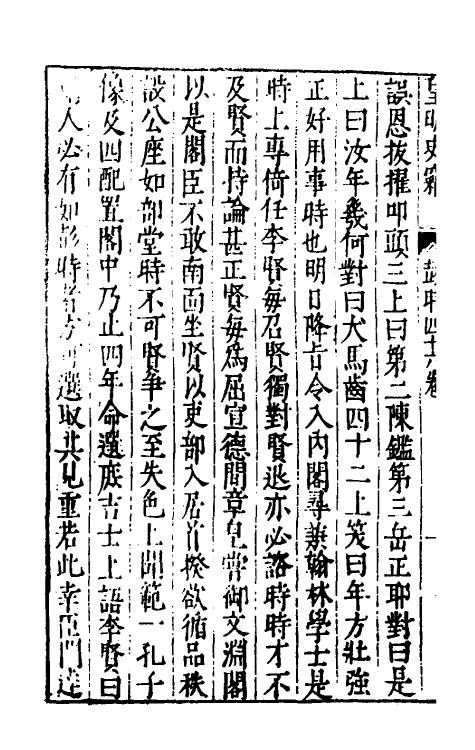 皇明史竊 彭時四十八卷
誤恩拔擢叩頭三上曰第二陳鑑第三岳正耶對曰是
上曰汝年幾何對曰犬馬齒四十二上笑曰年方壯強
正好用事時也明日降旨令入內閣尋兼翰林學士是
時上專倚任李賢每召賢獨對賢退亦必諮時時才不
及賢而持論甚正賢每為屈宣德間章皇嘗御文淵閣
以是閣臣不敢南面坐賢以吏部入居首揆欲循品秩
設公座如部堂時不可賢爭之至失色上聞範一孔子
像及四配置閣中乃止四年命選庶吉士上語李賢曰
人必有如彭時者方可選取其見重若此幸臣門達